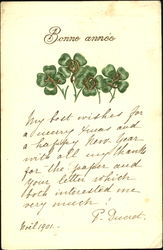 Bonne année
My best wishes for
a merry Xmas and
a happy New Year
with all my thanks
for the paper and
your letter which
both interested me
very much!
Noël 1901.